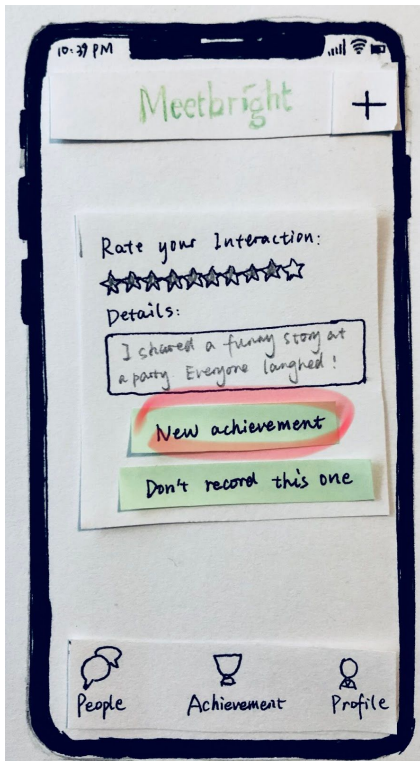 10:39 PM
Meetbright
+
Rate your Interaction:
Details:
I shared a funny story at
a party Everyone laughed!
New achievement
Don't record this one
People Achievement Profile